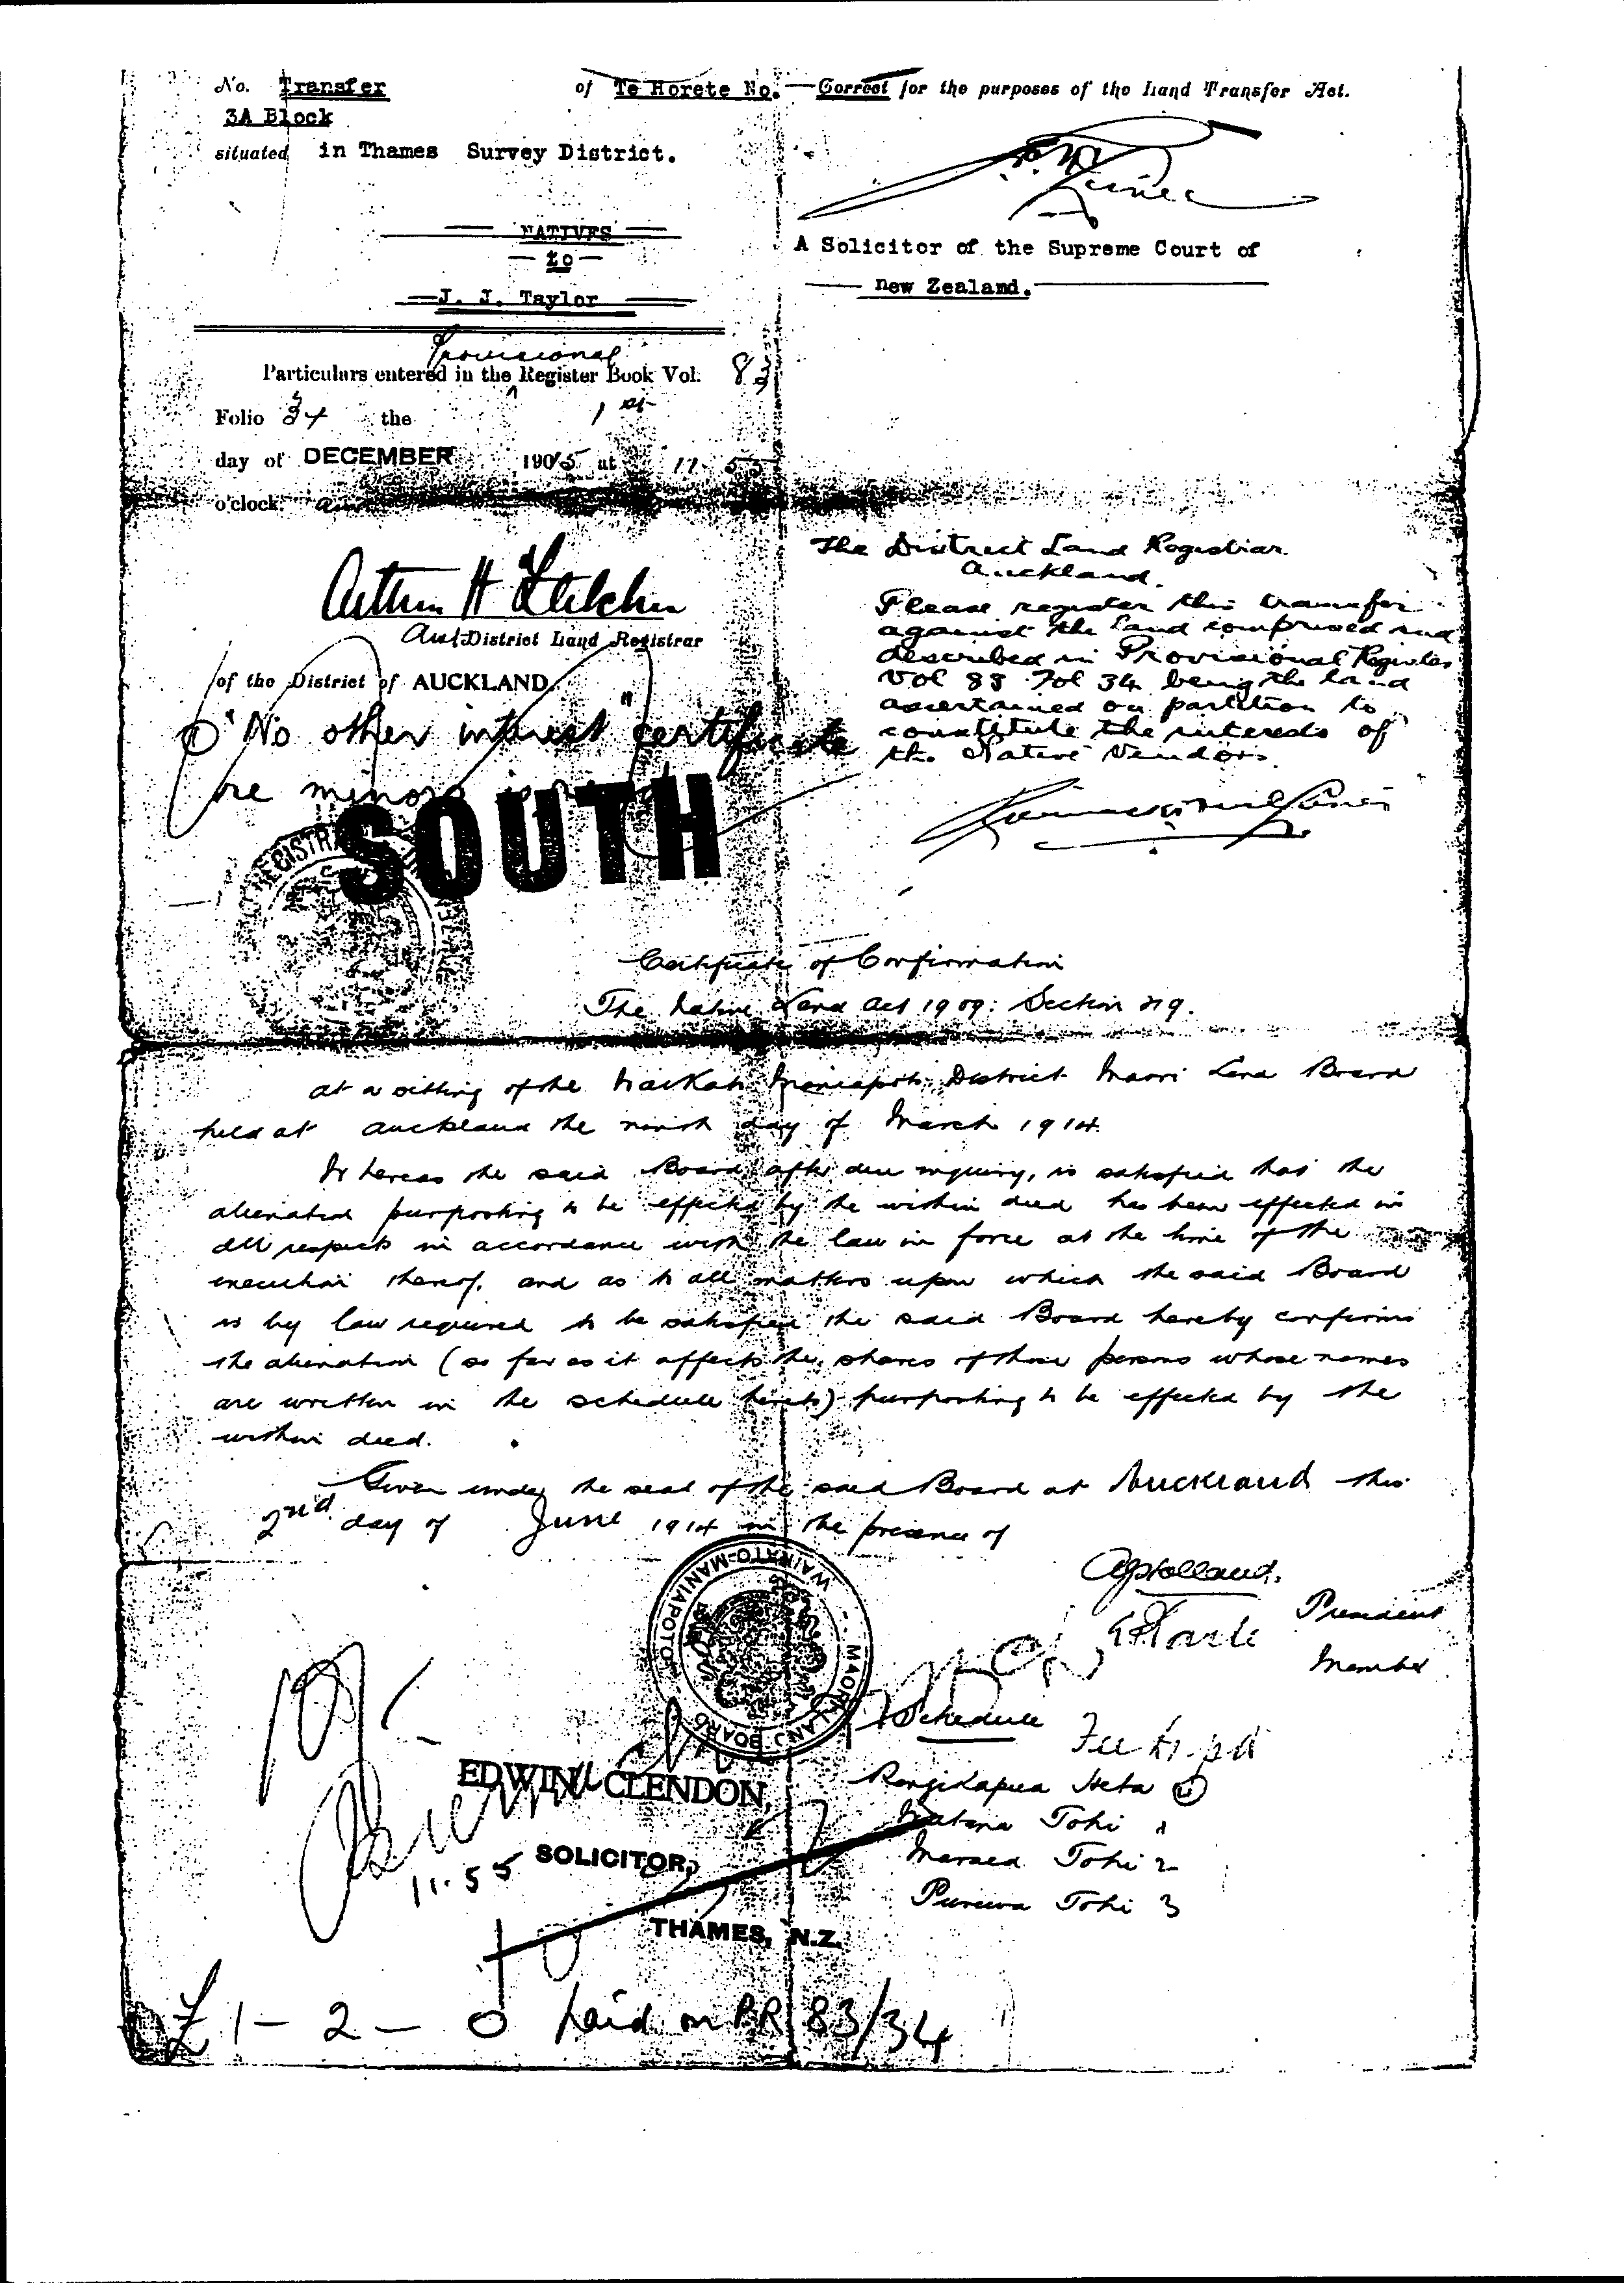 No. Transfer of Te Horete No.
3A Block
situated in Thames Survey District.
NATIVES
to
J. J. Taylor
Provisional
Particulars entered in the Register Book Vol. 83
Folio 34 the 1st
day of DECEMBER 1905 at 11.55
o'clock.
District Land Registrar
of the District of AUCKLAND
"No other interest" certificate
re minors
SOUTH
Correct for the purposes of the Land Transfer Act.
A Solicitor of the Supreme Court of
new Zealand.
The District Land Registrar
Auckland.
Please register this transfer
against the land comprised and
described in Provisional Register
Vol 83 Fol 34 being the land
ascertained on partition to
constitute the interests of
the Native Vendors.
Certificate of Confirmation
The Native Land Act 1909: Section 219.
At a sitting of the Waikato Maniapoto District Maori Land Board
held at Auckland the ninth day of March 1914.
Whereas the said Board, after due inquiry, is satisfied that the
alienation purporting to be effected by the within deed has been effected in
all respects in accordance with the law in force at the time of the
execution thereof, and as to all matters upon which the said Board
is by law required to be satisfied the said Board hereby confirms
the alienation (so far as it affects the shares of those persons whose names
are written in the schedule hereto) purporting to be effected by the
within deed.
Given under the seal of the said Board at Auckland this
2nd day of June 1914 in the presence of
WAIKATO-MANIAPOTO MAORI LAND BOARD
President
Member
Schedule
Rangikapua Heta
Tohi 1
Tohi 2
Tohi 3
EDWIN CLENDON,
SOLICITOR,
11.55
THAMES, N.Z.
£1-2-0 paid on PR 83/34